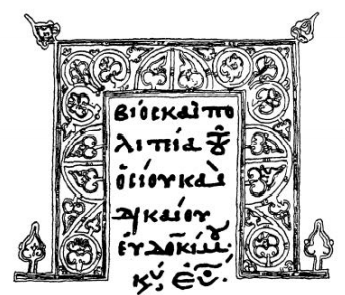 βίος και πο
λιτεία τοῦ
ὁσίου καὶ
δικαίου
εὐδοκίμου·
κύ, εὐ.